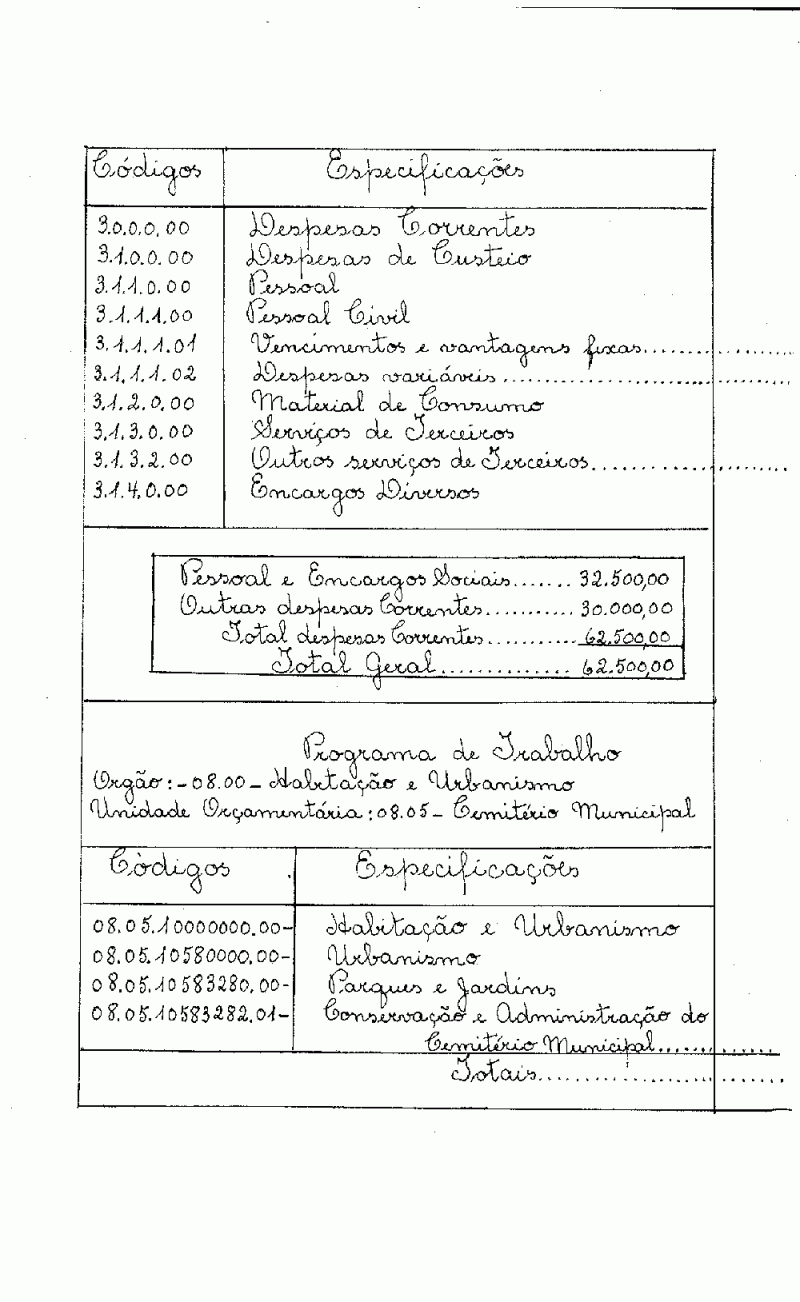 Códigos Especificações
3.0.0.0.00 Despesas Correntes
3.1.0.0.00 Despesas de Custeio
3.1.1.0.00 Pessoal
3.1.1.1.00 Pessoal Civil
3.1.1.1.01 Vencimentos e vantagens fixas..................
3.1.1.1.02 Despesas variáveis....................................
3.1.2.0.00 Material de Consumo
3.1.3.0.00 Serviços de Terceiros
3.1.3.2.00 Outros serviços de Terceiros.........................
3.1.4.0.00 Encargos Diversos
Pessoal e Encargos Sociais....... 32.500,00
Outras despesas Correntes........... 30.000,00
Total despesas Correntes........... 62.500,00
Total Geral.............. 62.500,00
Programa de Trabalho
Orgão:-08.00-Habitação e Urbanismo
Unidade Orçamentária:08.05-Cemitério Municipal
Códigos Especificações
08.05.10000000.00- Habitação e Urbanismo
08.05.10580000.00- Urbanismo
08.05.10583280.00- Parques e Jardins
08.05.10583282.01- Conservação e Administração do
Cemitério Municipal..............
Totais..........................